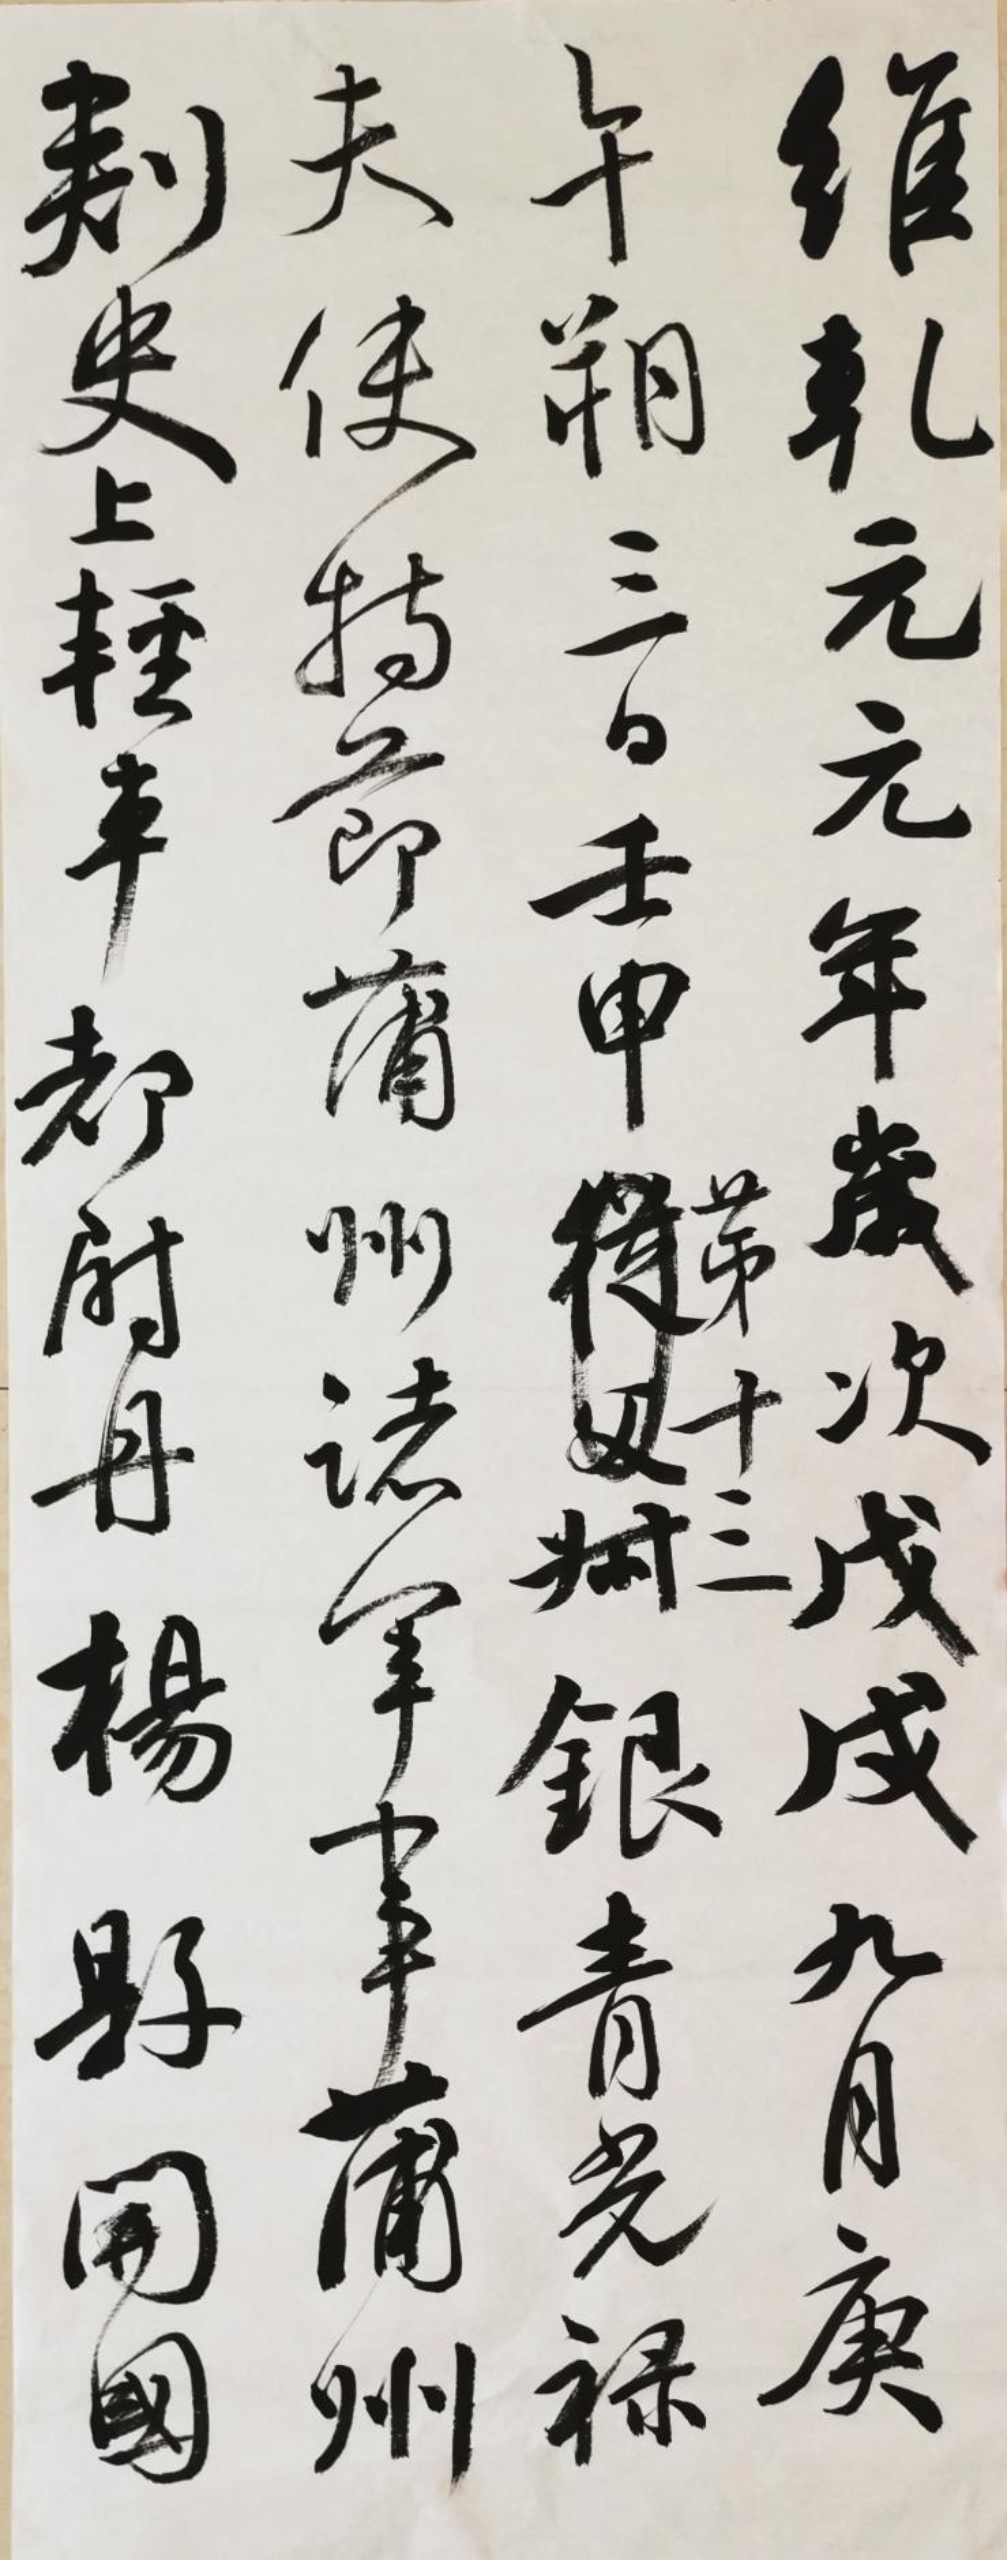 維乾元元年歲次戊戌九月庚
午朔三日壬申第十三叔銀青光祿
夫使持節蒲州諸軍事蒲州
刺史上輕車都尉丹楊縣開國